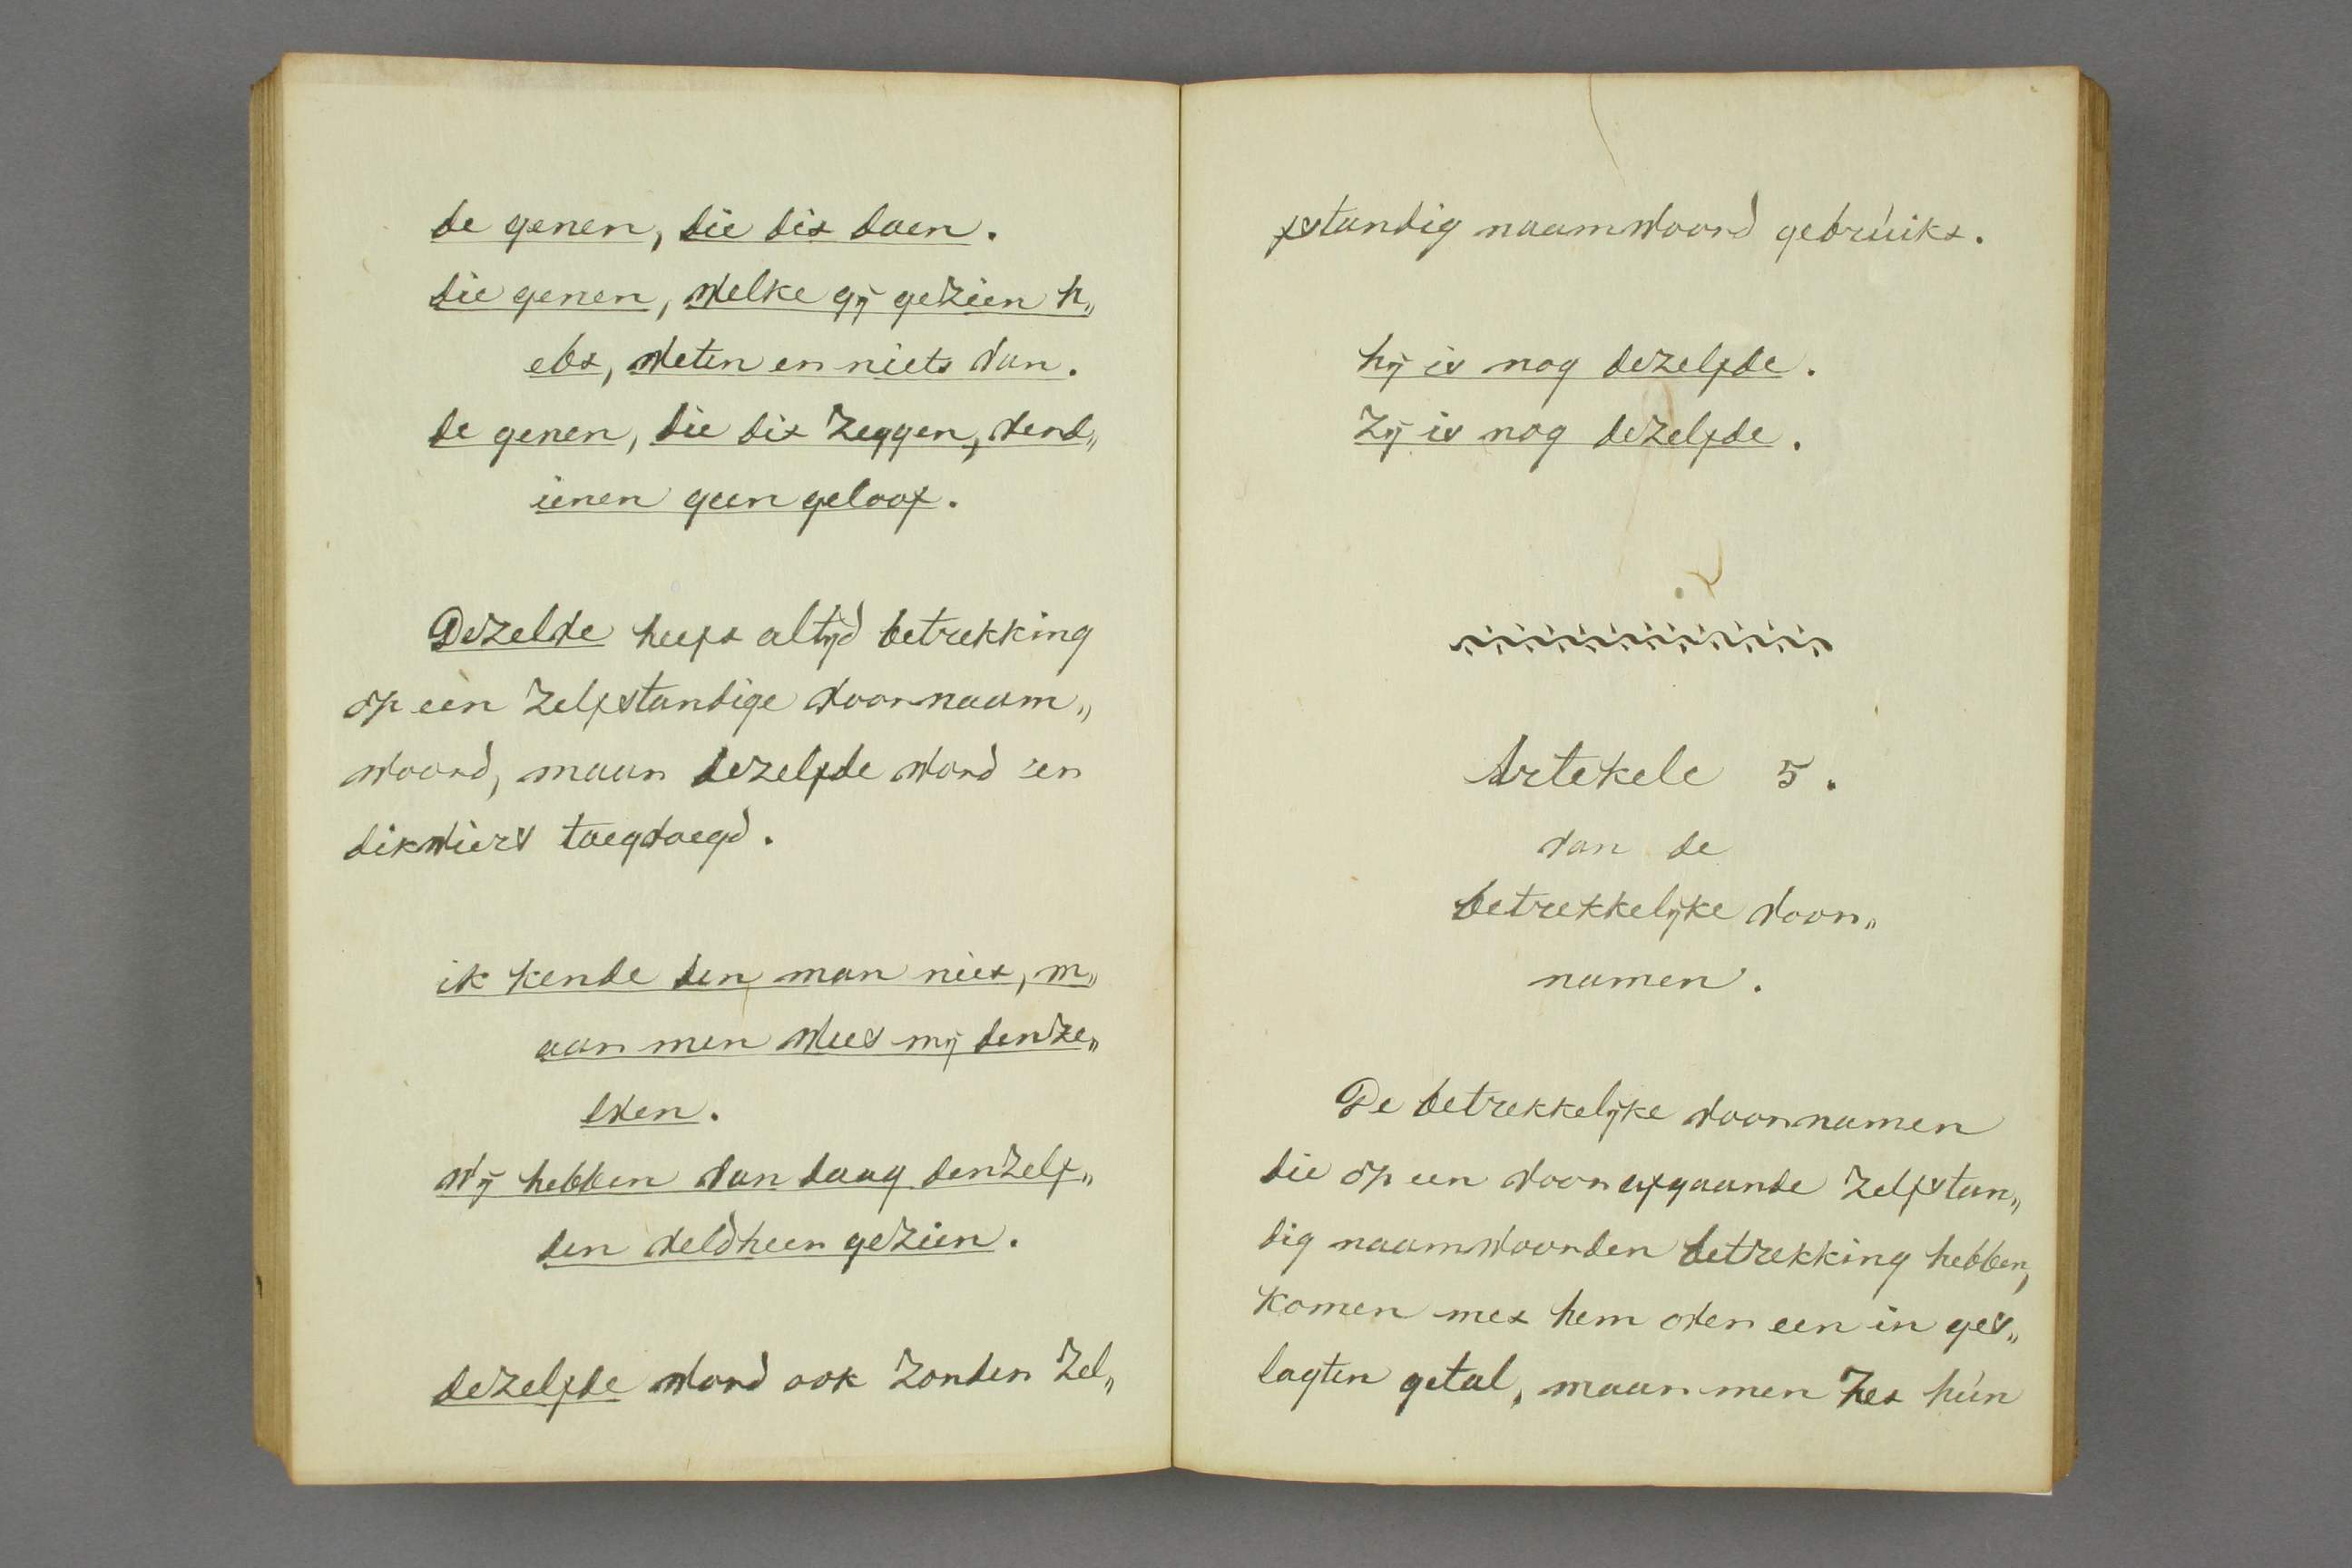 de genen, die dit doen.
die genen, welke gij gezien h„
ebt, weten er niets van.
de genen, die dit zeggen, verd„
ienen geen geloof.
Dezelve heeft altijd betrekking
op een zelfstandige voornaam„
woord, maar dezelfde word er
dikwiers toegvoegd.
ik kende den man niet, m„
aar men wees mij denze„
lven.
wij hebben van daag denzelf„
den veldheer gezien.
dezelfde word ook zonder zel„
fstandig naamwoord gebruikt.
hij is nog dezelfde.
zij is nog dezelfde.
Artekele 5.
van de
betrekkelijke voor„
namen.
De betrekkelijke voornamen
die op een voorafgaande zelfstan„
dig naamwoorden betrekking hebben,
komen met hem over een in ges„
lagten getal, maar men zet hun